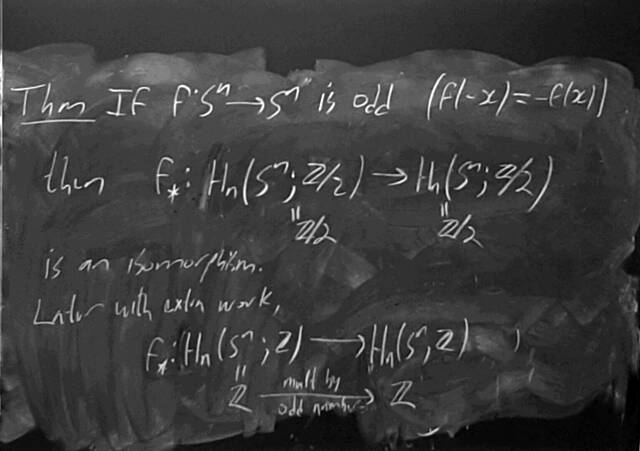 Thm If f: Sⁿ → Sⁿ is odd (f(-x) = -f(x))
then f_*: Hₙ(Sⁿ; ℤ/2) → Hₙ(Sⁿ; ℤ/2)
= ℤ/2 = ℤ/2
is an isomorphism.
Later with extra work,
f_*: Hₙ(Sⁿ; ℤ) → Hₙ(Sⁿ; ℤ)
= mult by
ℤ odd number → ℤ